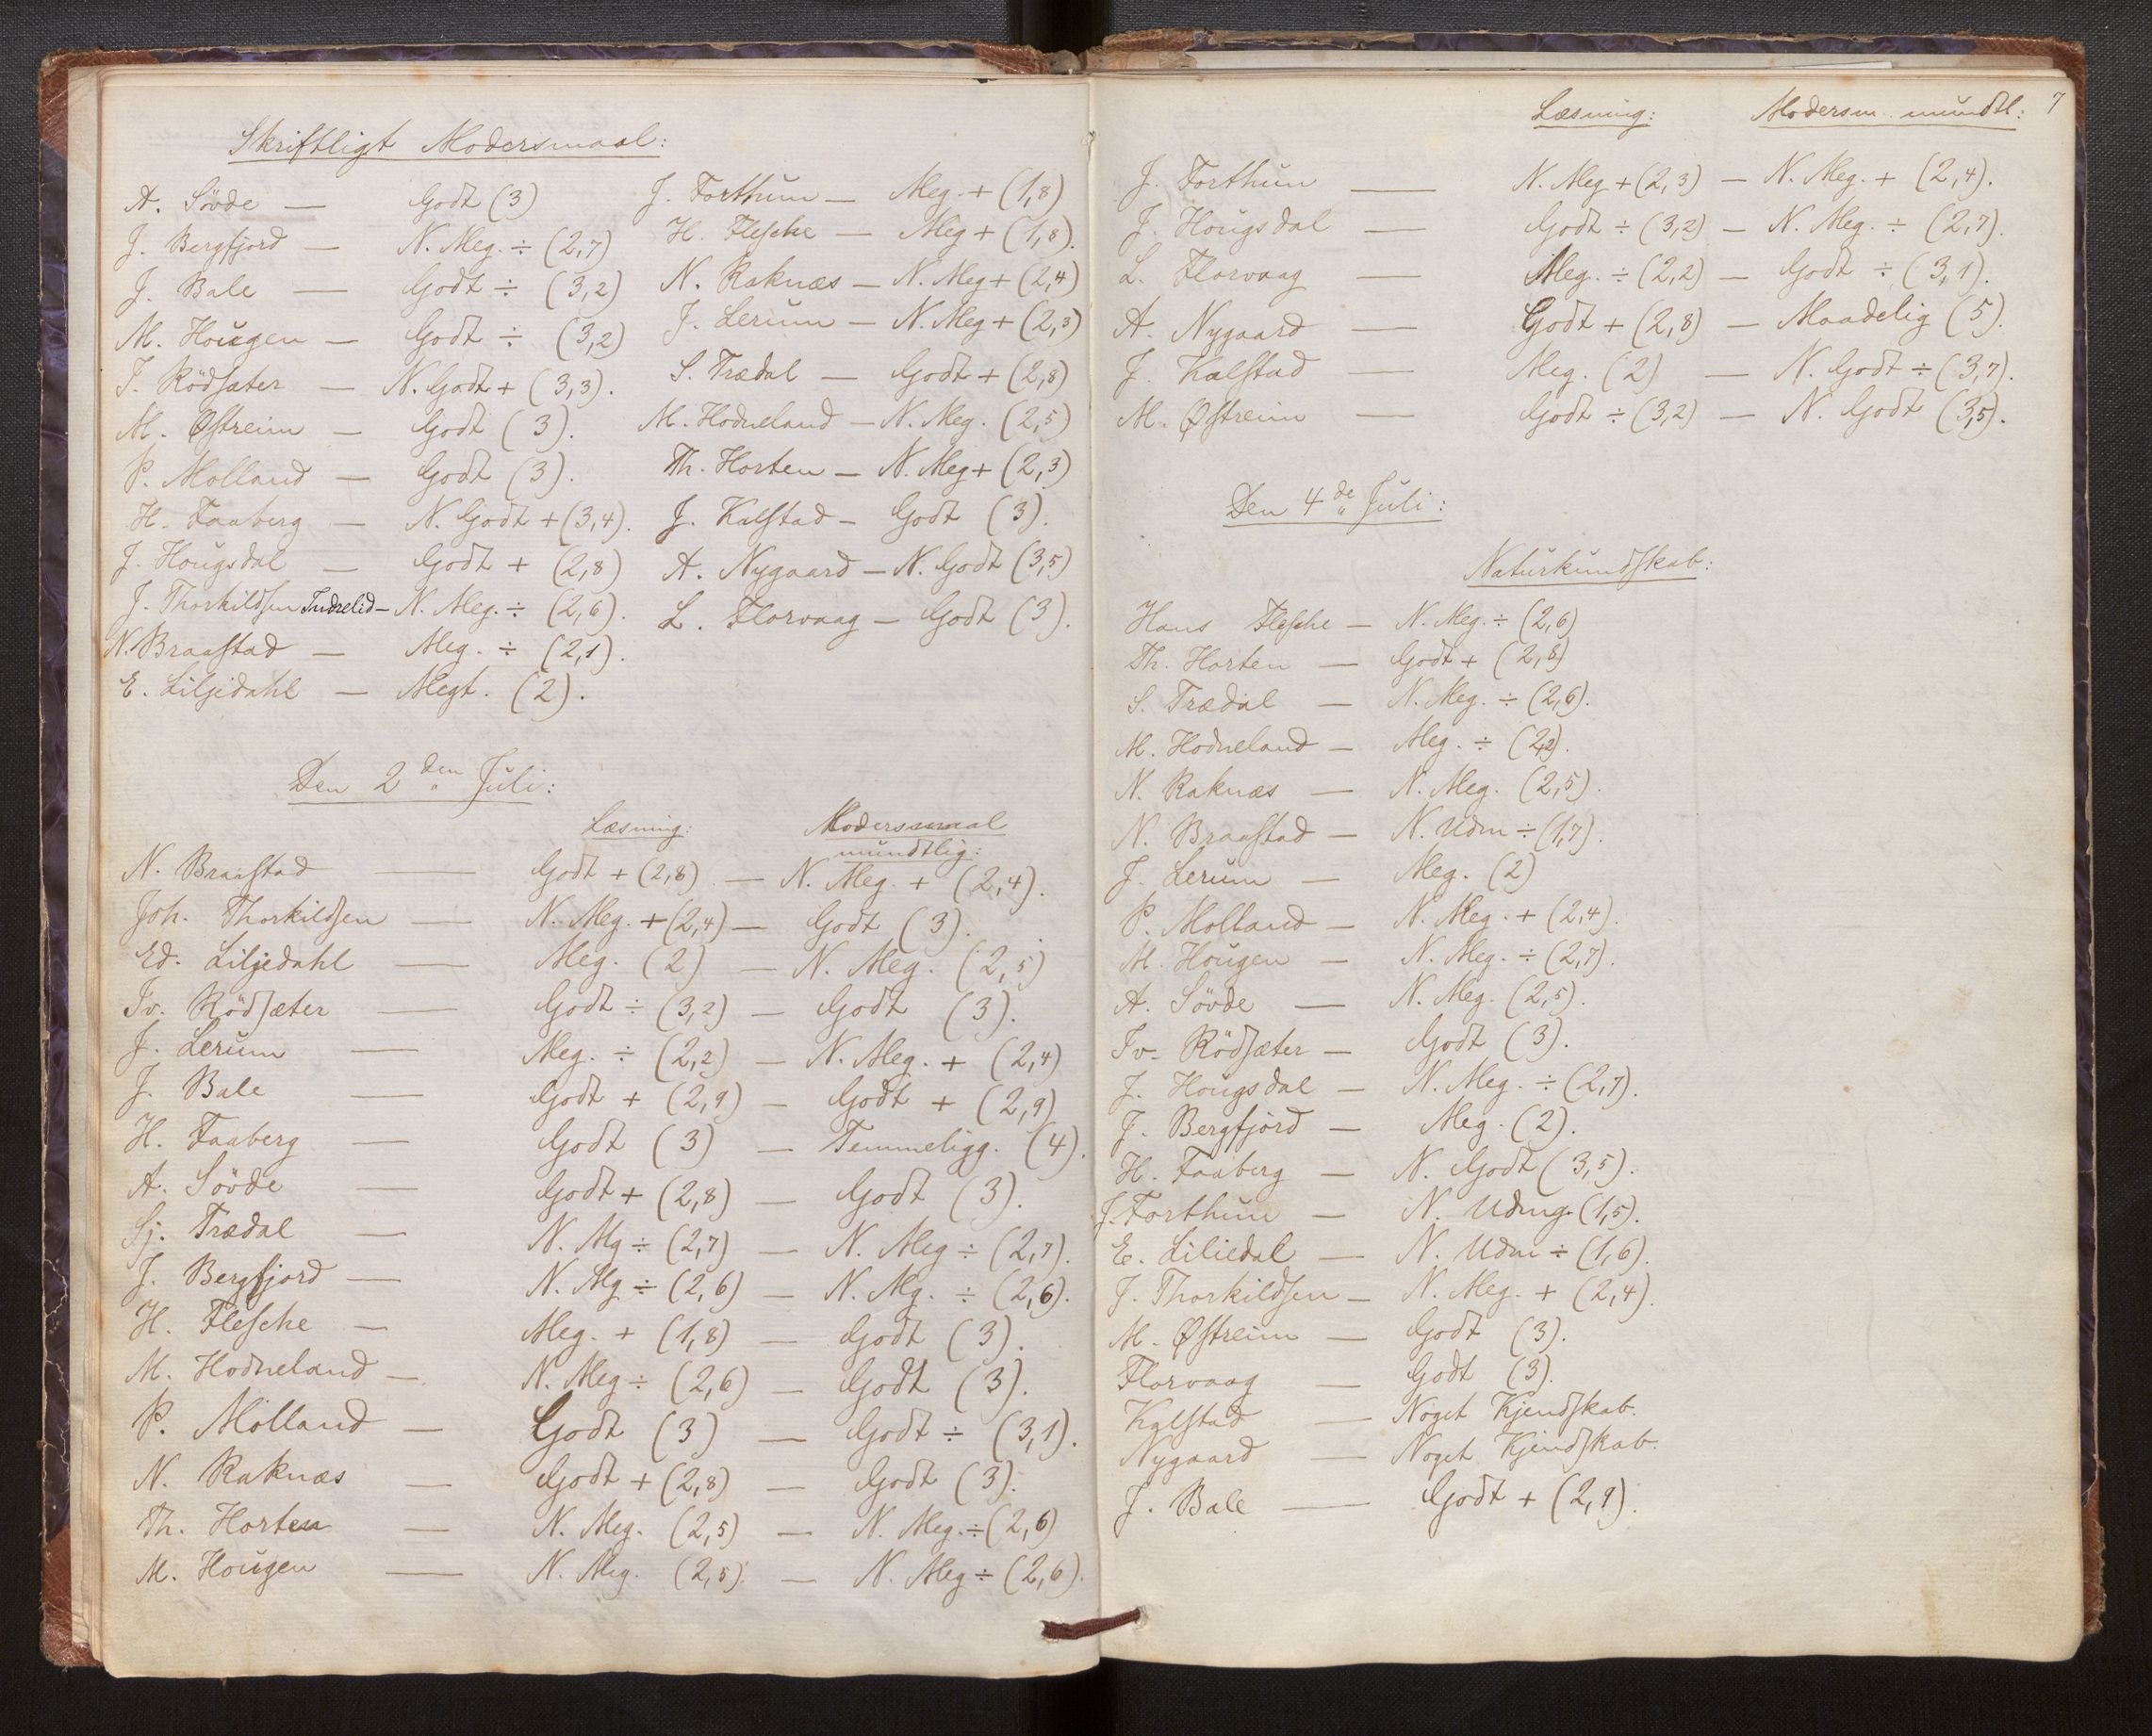 Skriftligt Modersmaal:
A. Sövde — Godt (3)
J. Bergfjord — N. Meg. ÷ (2,7)
J. Bale — Godt ÷ (3,2)
M. Hougen — Godt ÷ (3,2)
I. Rödsæter — N. Godt + (3,3).
M. Østreim — Godt (3).
P. Molland — Godt (3).
H. Faaberg — N. Godt + (3,4).
J. Hougsdal — Godt + (2,8)
J. Thorkildsen Indrelid — N. Meg. ÷ (2,6).
N. Braastad — Meg. ÷ (2,1).
E. Liljedahl — Megt. (2).
J. Forthun — Meg. + (1,8)
H. Flesche — Meg + (1,8).
N. Raknæs — N. Meg + (2,4)
J. Lerum — N. Meg + (2,3)
S. Trædal — Godt + (2,8)
M. Hodneland — N. Meg. (2,5)
Th. Horten — N. Meg + (2,3)
J. Kalstad — Godt (3).
A. Nygaard — N. Godt (3,5)
L. Florvaag — Godt (3).
Den 2den Juli:
Læsning: Modersmaal
mundtlig:
N. Braastad — Godt + (2,8) — N. Meg. + (2,4).
Joh. Thorkildsen — N. Meg. + (2,4) — Godt (3).
Ed. Liljedahl — Meg. (2) — N. Meg. (2,5)
Iv. Rödsæter — Godt ÷ (3,2) — Godt (3).
J. Lerum — Meg. ÷ (2,2) — N. Meg. + (2,4)
J. Bale — Godt + (2,9) — Godt + (2,9)
H. Faaberg — Godt (3) — Temmeligg. (4).
A. Sövde — Godt + (2,8) — Godt (3).
Sj. Trædal — N. Mg ÷ (2,7) — N. Meg ÷ (2,7).
J. Bergfjord — N. Mg ÷ (2,6) — N. Mg. ÷ (2,6).
H. Flesche — Meg. + (1,8) — Godt (3).
M. Hodneland — N. Meg ÷ (2,6) — Godt (3).
P. Molland — Godt (3) — Godt ÷ (3,1).
N. Raknæs — Godt + (2,8) — Godt (3).
Th. Horten — N. Meg. (2,5) — N. Meg. ÷ (2,6)
M. Hougen — N. Meg. (2,5). — N. Meg ÷ (2,6).
7
Læsning: Modersm. mundtl:
J. Forthun — N. Meg + (2,3) — N. Meg. + (2,4).
J. Hougsdal — Godt ÷ (3,2) — N. Meg. ÷ (2,7).
L. Florvaag — Meg. ÷ (2,2) — Godt ÷ (3,1).
A. Nygaard — Godt + (2,8) — Maadelig (5).
J. Kalstad — Meg. (2) — N. Godt ÷ (3,7).
M. Østreim — Godt ÷ (3,2) — N. Godt (3,5).
Den 4de Juli:
Naturkundskab:
Hans Flesche — N. Meg. ÷ (2,6)
Th. Horten — Godt + (2,8)
S. Trædal — N. Meg. ÷ (2,6).
M. Hodneland — Meg. ÷ (2,2).
N. Raknæs — N. Meg. (2,5).
N. Braastad — N. Udm ÷ (1,7).
J. Lerum — Meg. (2)
P. Molland — N. Meg. + (2,4).
M. Hougen — N. Meg. ÷ (2,7).
A. Sövde — N. Meg. (2,5).
Iv. Rödsæter — Godt (3).
J. Hougsdal — N. Meg. ÷ (2,7).
J. Bergfjord — Meg. (2).
H. Faaberg — N. Godt (3,5).
J. Forthun — N. Udmg. (1,5).
E. Liliedal — N. Udm ÷ (1,6).
J. Thorkildsen — N. Meg. + (2,4).
M. Østreim — Godt (3).
Florvaag — Godt (3).
Kalstad — Noget Kjendskab.
Nygaard — Noget Kjendskab.
J. Bale — Godt + (2,9).